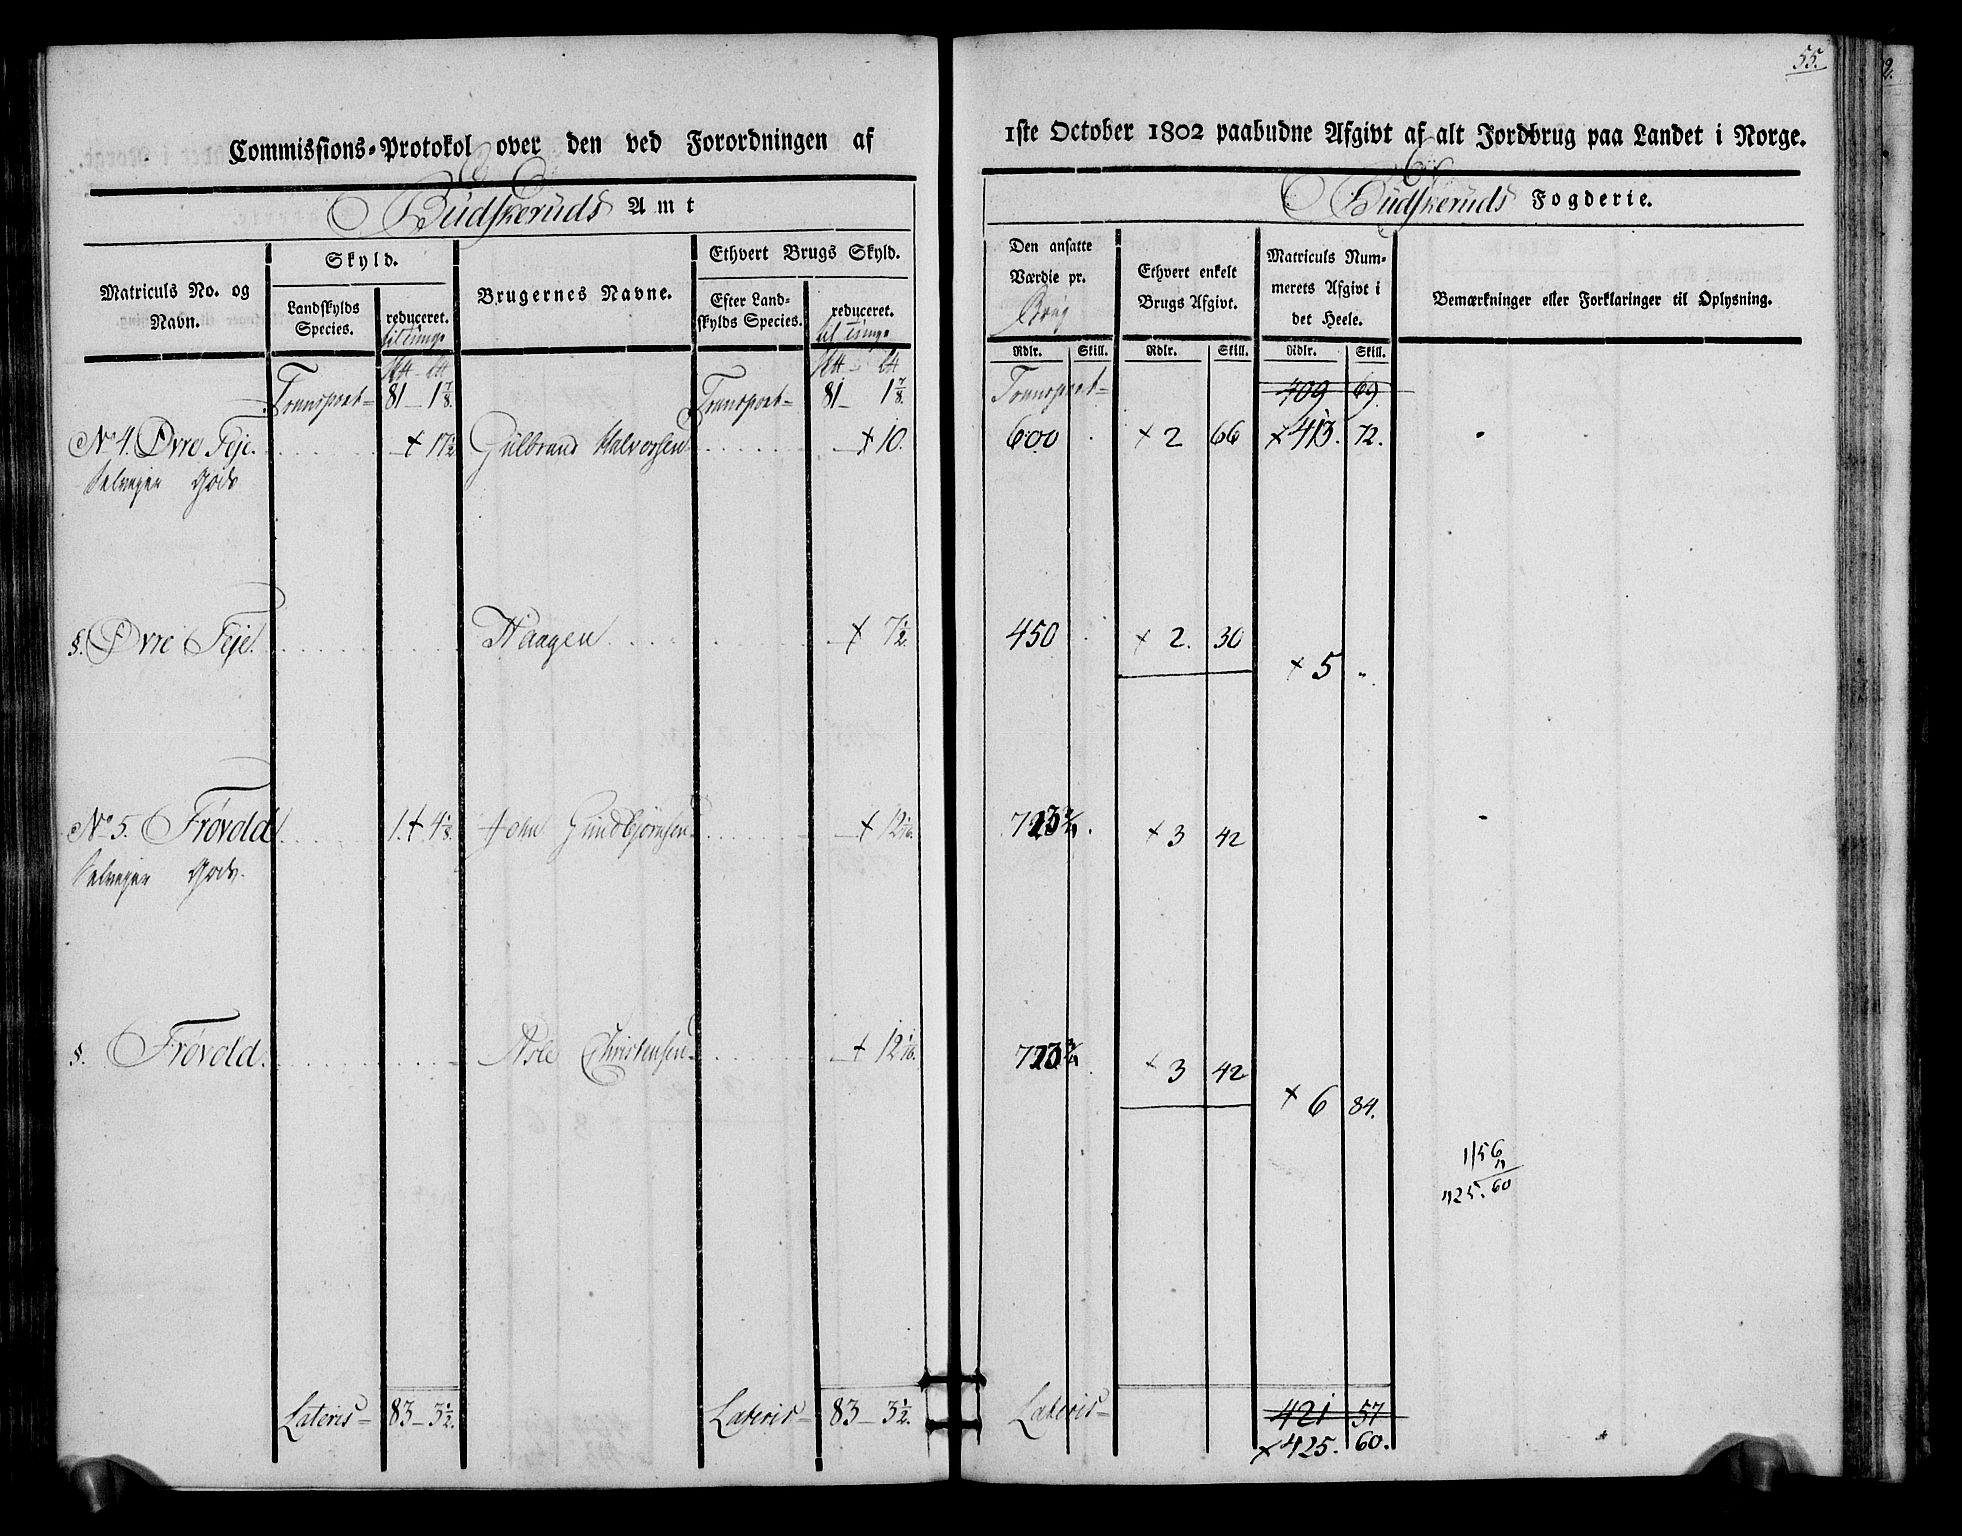 55.
2.
Commissions-Protokol over den ved Forordningen af 1ste October 1802 paabudne Afgivt af alt Jordbrug paa Landet i Norge.
Budskeruds Amt
Budskeruds Fogderie.
Matriculs No. og Navn.
Skyld.
Landskylds Species.
reduceret.
til Tunge
Brugernes Navne.
Ethvert Brugs Skyld.
Efter Landskylds Species.
reduceret.
til Tunge
Den ansatte Værdie pr. Brug
Ethvert enkelt Brugs Afgivt.
Matriculs Nummerets Afgivt i det Heele.
Bemærkninger eller Forklaringer til Oplysning.
Rdlr. Skill. Rdlr. Skill. Rdlr. Skill.
Transport 81 - 1 7/8. Transport 81 - 1 7/8. Transport 409 69.
No 4. Øvre Feje. + 17 1/2 Gulbrand Halvorsen + 10. 600 + 2 66 + 413. 72.
Selveyer Gods
§. Øvre Feje. Haagen + 7 1/2. 450 + 2. 30
+ 5 "
No 5. Frøvold 1. + 4 1/8. John Gundbjørnsen + 12 1/16. 723 3/4. + 3 42
Selveyer Gods.
§. Frøvold. Asle Christensen + 12 1/16. 723 3/4 + 3 42
+ 6 84.
1/56
425. 60
Lateris 83 - 3 1/2. Lateris 83 - 3 1/2. Lateris 421 57
+ 425. 60.